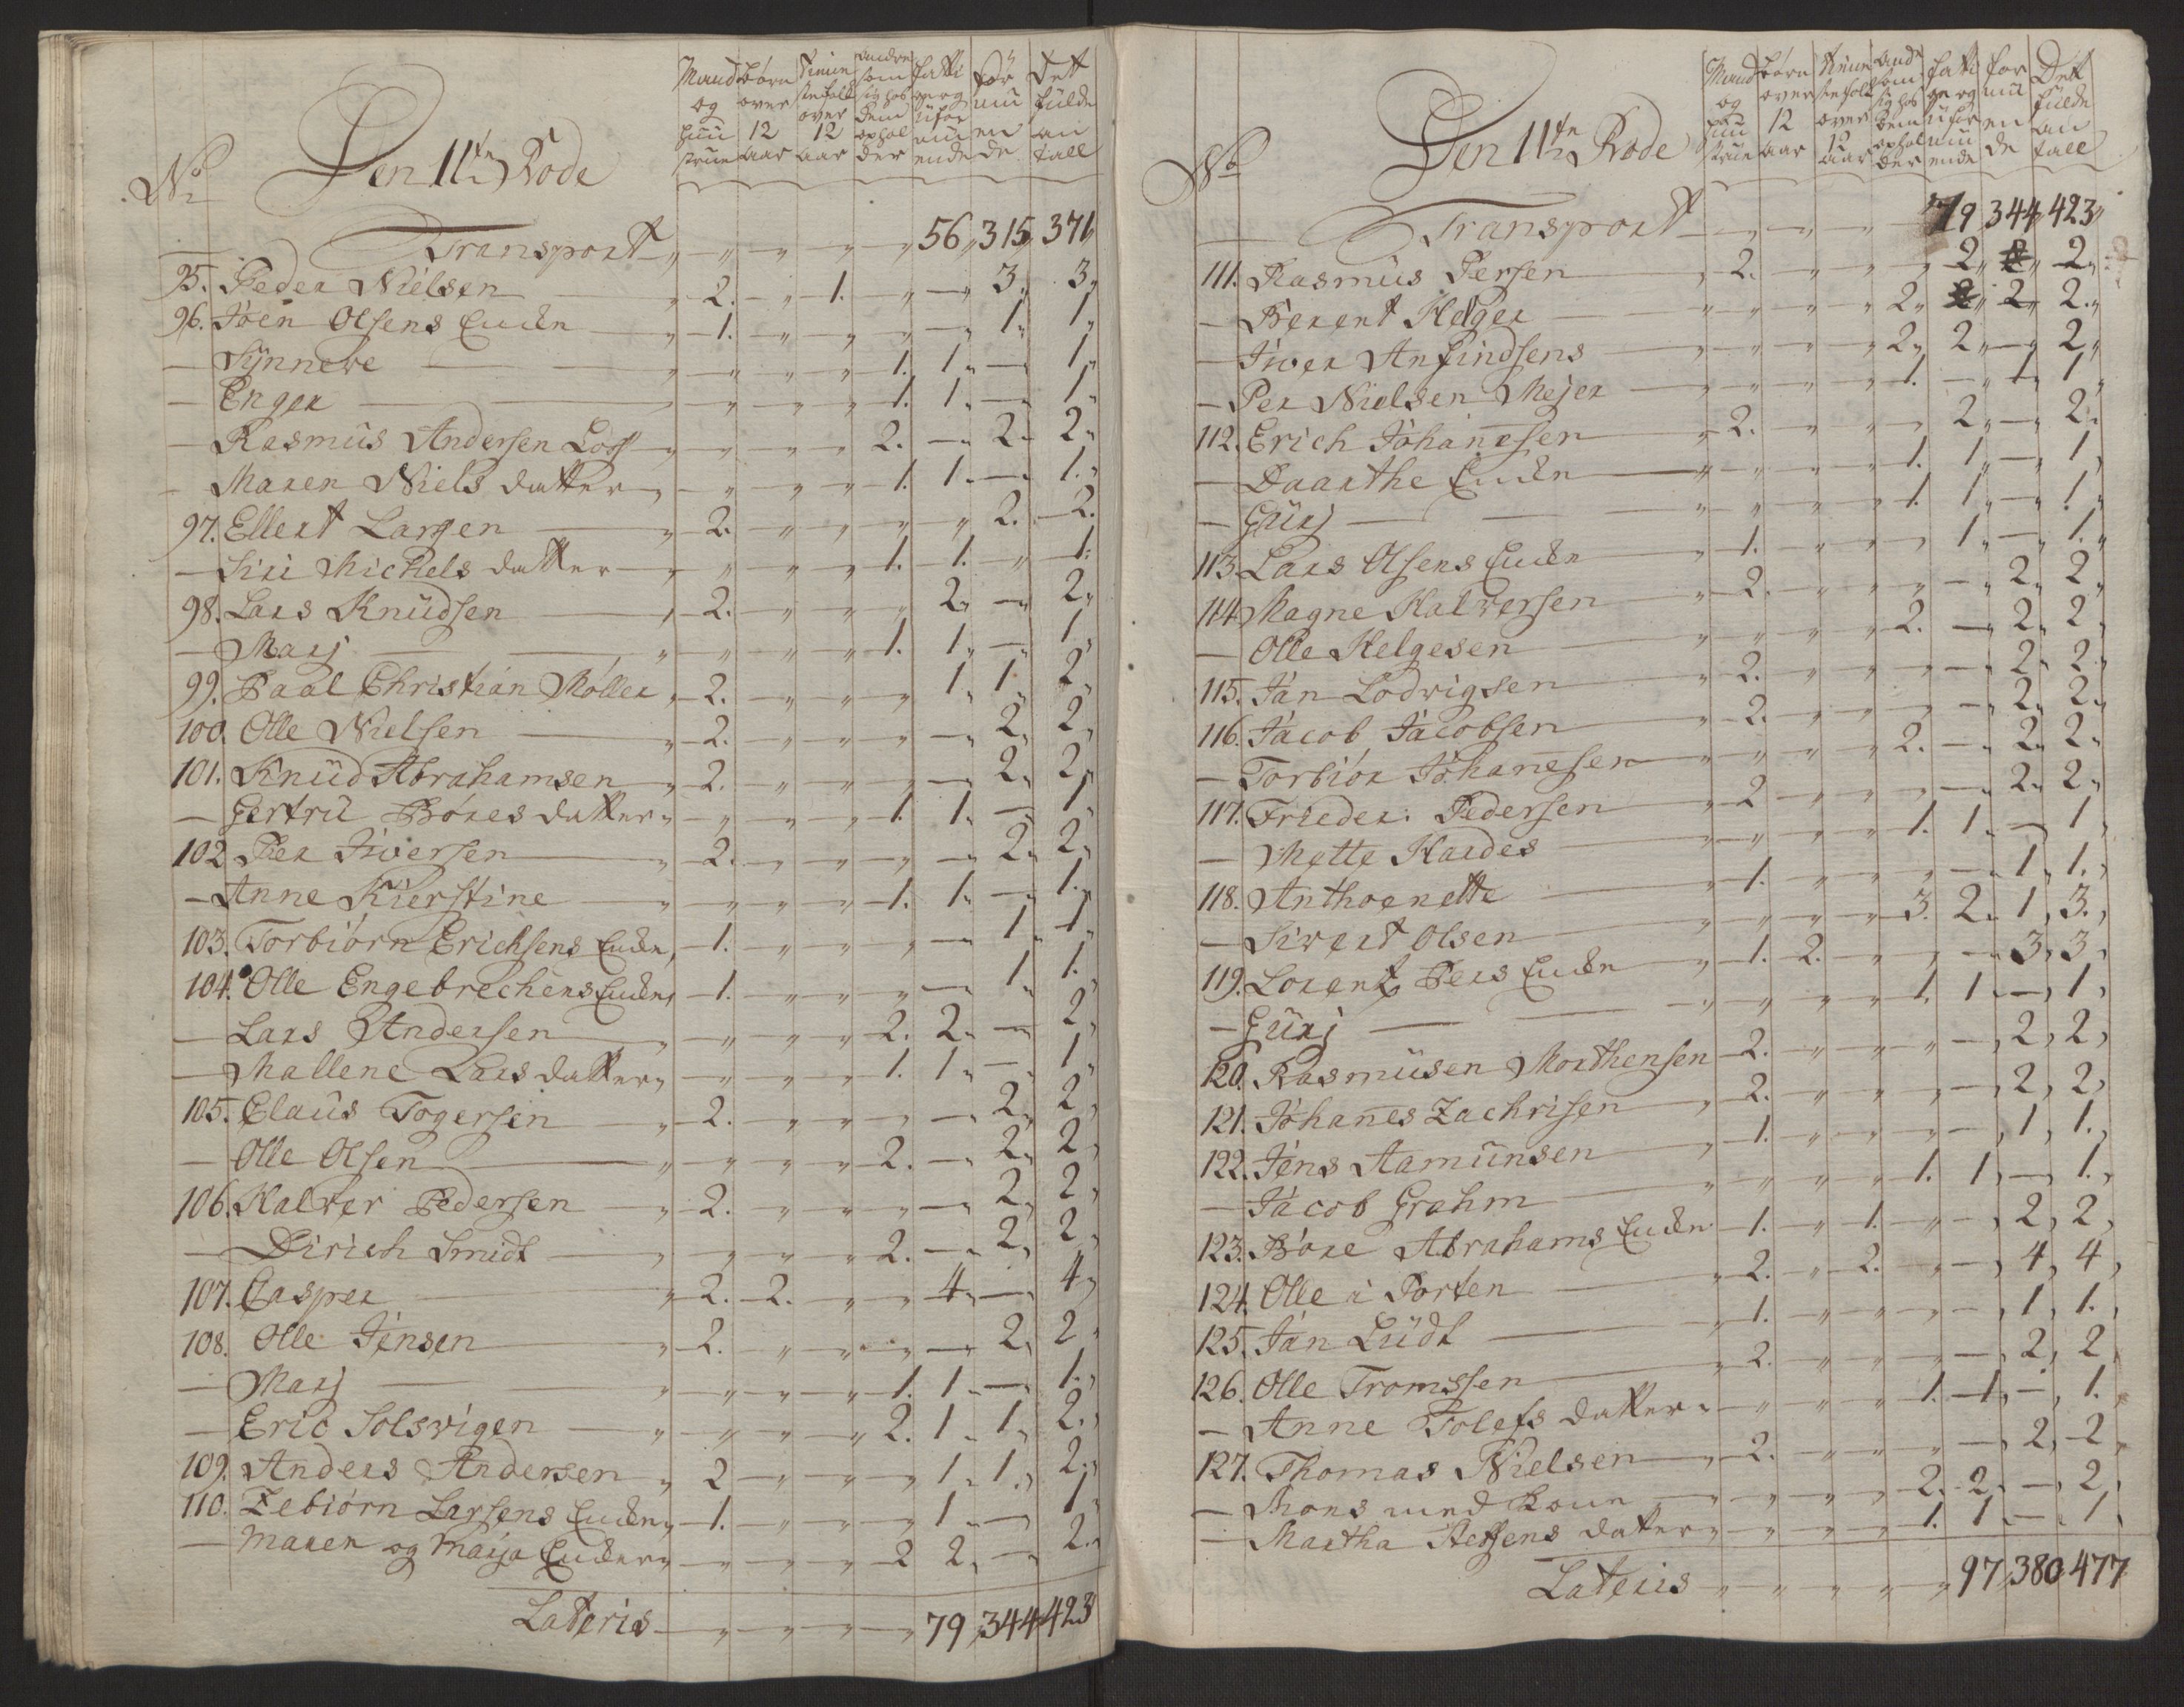 No
Den 11te Rode
Mand og Huustrue
børn over 12 aar
Tieniste folk over 12 aar
andre som sig hos dem ophol der
fatti ge og uformuende
for mu en de
Det fulde an tall
Transport „ „ „ „ „ 56„ 315„ 371„
95. Peder Nielsen „ 2. „ 1. „ — 3„ 3„
96. Joen Olsens Encken „ 1. „ „ „ — 1„ 1„
— Synneve „ „ „ „ 1. 1„ — 1„
— Enger „ „ „ „ 1. 1„ — 1„
— Rasmus Andersen Loss „ „ „ „ 2. — 2„ 2„
— Maren Niels datter „ „ „ „ 1. 1„ — 1„
97. Ellert Larsen „ 2. „ „ „ „ 2. 2.
— Siri Michels datter „ „ „ „ 1. 1. „ 1.
98. Lars Knudsen „ 2. „ „ „ 2„ — 2„
— Marj „ „ „ „ 1. 1„ — 1„
99. Paal Christian Møller „ 2. „ „ „ 1„ 1„ 2„
100. Olle Nielsen „ 2. „ „ „ — 2„ 2„
101. Knud Abrahamsen „ 2. „ „ „ — 2„ 2„
— Gertru Børes datter „ „ „ „ 1. 1„ — 1„
102. Per Iversen „ 2. „ „ „ — 2„ 2„
— Anne Kierstine „ „ „ „ 1. 1„ — 1„
103. Torbiørn Erichsens Encke „ 1. „ „ „ — 1„ 1„
104. Olle Engebrechens Encke „ 1. „ „ „ — 1„ 1„
— Lars Andersen „ „ „ „ 2. 2„ — 2„
— Mallene Lars datter „ „ „ „ 1. 1„ — 1„
105. Claus Togersen „ 2. „ „ „ — 2„ 2„
— Olle Olsen „ „ „ „ 2. — 2„ 2„
106. Halver Pedersen „ 2. „ „ „ — 2„ 2„
— Dirich Smidt „ „ „ „ 2. — 2„ 2„
107. Casper „ 2. 2. „ „ 4„ — 4„
108. Olle Jensen „ 2. „ „ „ — 2„ 2„
— Marj „ „ „ „ 1. 1„ — 1„
— Eric Solsvigen „ „ „ „ 2. 1„ 1„ 2„
109. Anders Andersen „ 2 „ „ „ 1„ 1„ 2„
110. Zebiørn Larsens Encke „ 1. „ „ „ 1„ — 1„
— Maren og Marja Encker „ „ „ „ 2 2„ — 2„
Lateris „ „ „ „ 79„ 344„ 423
No
Den 11te Rode
Mand og Huustrue
børn over 12 aar
Tieniste folk over 12 aar
andre som sig hos dem ophol der
fatti ge og uformuende
for mu en de
Det fulde an tall
Transport „ „ „ „ 79 344„ 423„
111. Rasmus Persen „ 2. „ „ „ 2„ „ 2„
— Berent Helger „ „ „ „ 2„ „ 2„ 2„
— Iver Anfindsens „ „ „ „ 2„ 2„ — 2„
— Per Nielsen Mejer „ „ „ „ 1. — 1„ 1„
112. Erich Johannesen „ 2. „ „ „ 2„ — 2„
— Daarthe Encke „ „ „ „ 1. 1„ — 1„
— Gurj „ „ „ „ 1. 1„ — 1„
113. Lars Olsens Encke „ 1. „ „ „ 1„ — 1„
114. Magne Halversen „ 2. „ „ „ — 2„ 2„
— Olle Helgesen „ „ „ „ 2. — 2„ 2„
115. Jan Lodvigsen „ 2. „ „ „ — 2„ 2„
116. Jacob Jacobsen „ 2. „ „ „ — 2„ 2„
— Torbiør Johannesen „ „ „ „ 2. — 2„ 2„
117. Frieder: Pedersen „ 2 „ „ „ — 2„ 2„
— Mette Hardes „ „ „ „ 1. 1„ — 1„
118. Anthoenette „ 1. „ „ „ — 1„ 1„
— Sivert Olsen „ „ „ „ 3. 2„ 1„ 3„
119. Lorentz Pers Encke „ 1. 2. „ „ — 3„ 3„
— Gurj „ „ „ „ 1. 1„ — 1„
120. Rasmusen Morthensen 2. „ „ „ — 2„ 2„
121. Johannes Zachrisen „ 2. „ „ „ — 2„ 2„
122. Jens Aamunsen „ 1. „ „ „ — 1„ 1„
— Jacob Grahm „ „ „ „ 1. 1„ — 1„
123. Børe Abrahams Encke 1. „ 1. „ — 2„ 2„
124. Olle i Porten „ 2. „ 2. „ — 4„ 4„
125. Jan Lüdt „ 1. „ „ „ — 1„ 1„
126. Olle Tromssen „ 2. „ „ „ — 2„ 2
— Anne Tolefs datter „ „ „ „ 1. 1„ — 1.
127. Thomas Nielsen „ 2. „ „ „ — 2„ 2„
— Mons med Kone „ „ „ „ 2. 2„ — 2„
— Martha datter „ „ „ „ 1. 1„ — 1„
Lateris „ „ „ „ „ 97„ 380„ 477